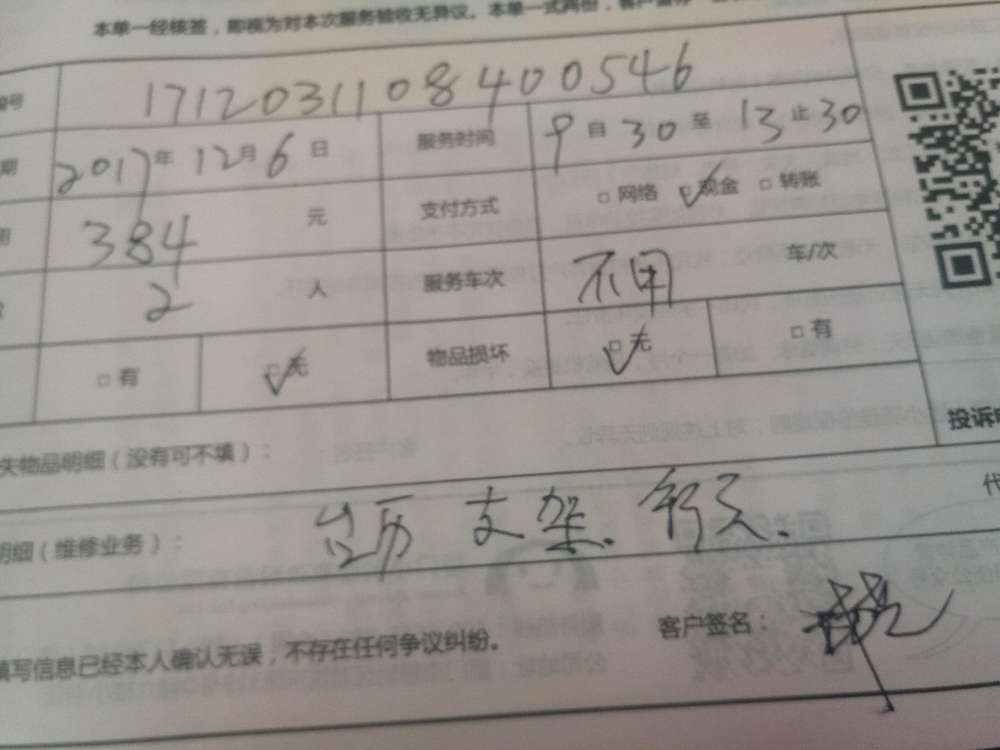 本单一经核签，即视为对本次服务验收无异议。本单一式两份，客户留存一
编号 1712031108400546
期 2017年12月6日 服务时间 9自30至13止30
384元 支付方式 □网络 ☑现金 □转账
2人 服务车次 不用 车/次
□有 ☑无 物品损坏 ☑无 □有
投诉
失物品明细（没有可不填）：
代
明细（维修业务）： 台历 支架.
填写信息已经本人确认无误，不存在任何争议纠纷。 客户签名：